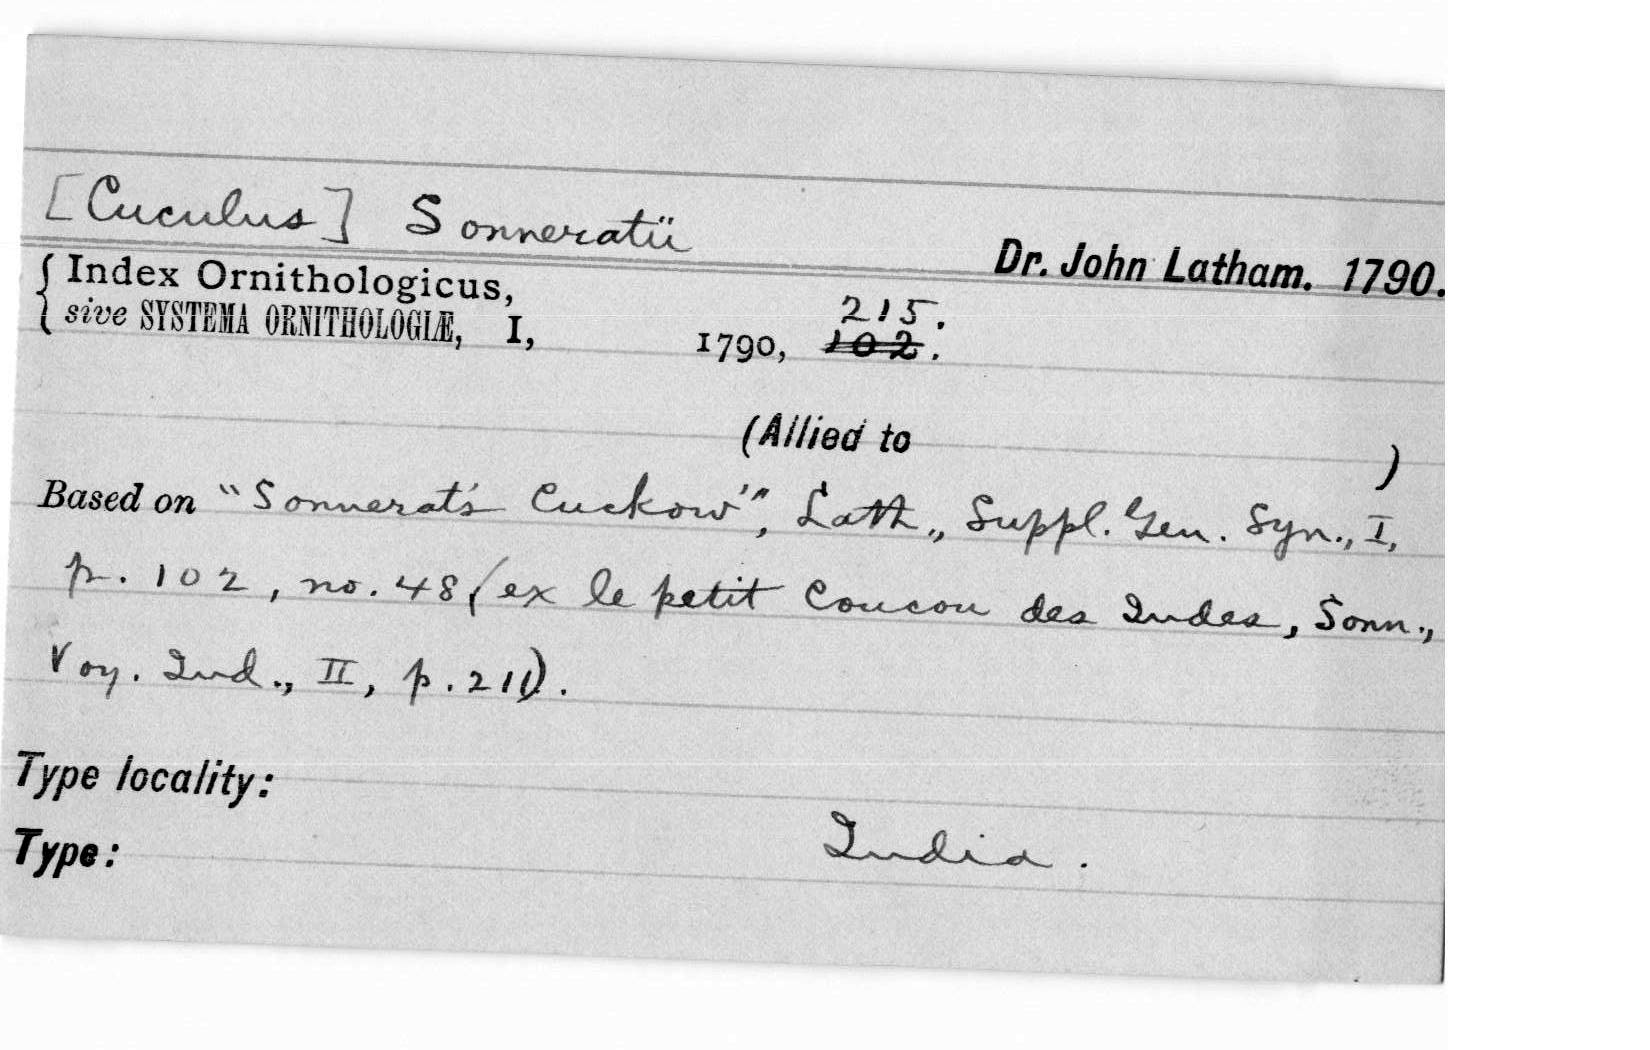 [Cuculus] Sonneratii
Dr. John Latham. 1790.
{ Index Ornithologicus,
sive SYSTEMA ORNITHOLOGIÆ, I, 1790, 102. 215.
(Allied to )
Based on "Sonnerat's Cuckow", Lath., Suppl. Gen. Syn., I,
p. 102, no. 48 (ex le petit Coucou des Indes, Sonn.,
Voy. Ind., II, p. 211).
Type locality:
India.
Type: